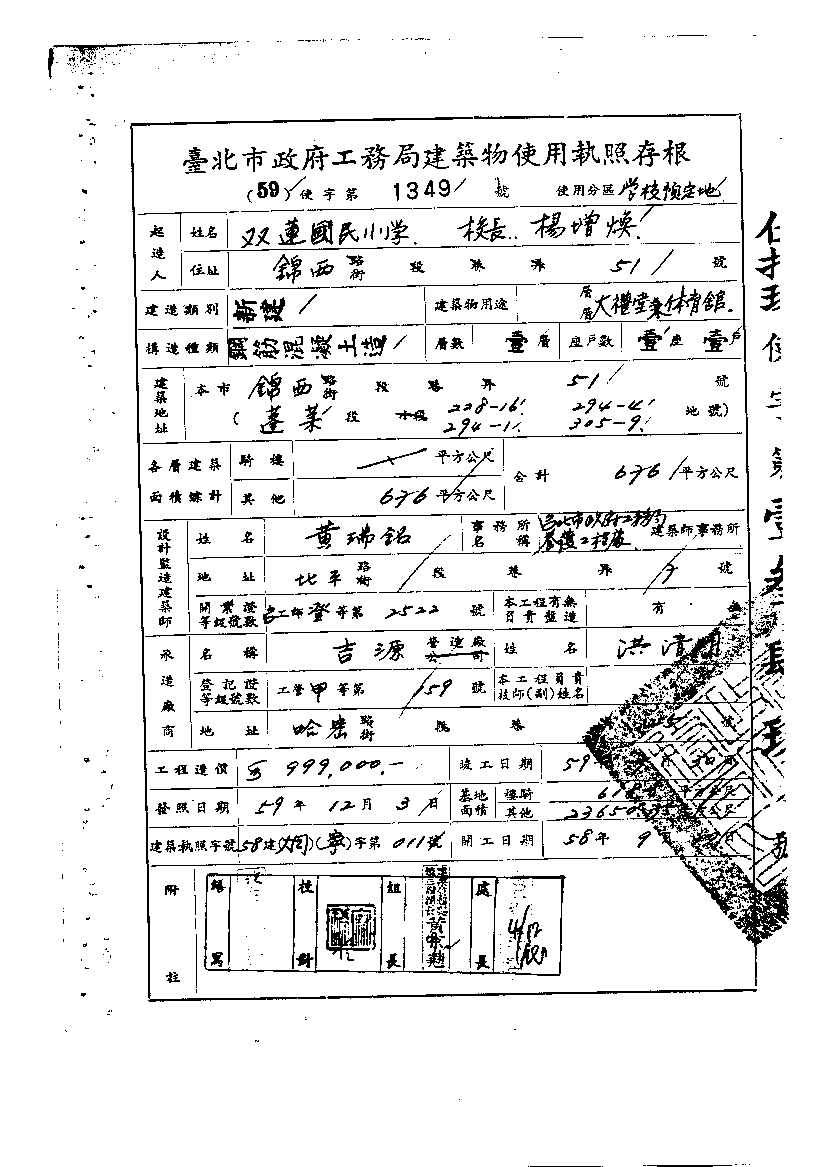 臺北市政府工務局建築物使用執照存根
(59)使字第 1349 號 使用分區 学校預定地
起造人 姓名 双蓮國民小学 校長 楊增煥
住址 錦西 路街 段 巷 弄 51 號
建造類別 新建 建築物用途 層層 大禮堂兼体育館
構造種類 鋼筋混凝土造 層數 壹層 座戶數 壹座 壹戶
建築地址 本市 錦西 路街 段 巷 弄 51 號
(蓬萊 段 小段 228-16 294-4 地號)
294-1 305-9
各層建築面積總計 騎樓 平方公尺 合計 676 平方公尺
其他 676 平方公尺
設計監造建築師 姓名 黃瑞銘 事務所名稱 台北市政府工務局 建築師事務所
地址 北平 路街 段 巷 弄 號
開業證等級號數 工師 登 等第 2522 號 本工程有無負責監造 有 無
承造廠商 名稱 吉源 營造廠公司 姓名 洪清
登記證等級號數 工營甲等第 159 號 本工程負責技師(副)姓名
地址 哈密 路街 段 巷 號
工程造價 999,000.- 竣工日期 59
發照日期 59年12月3日 基地面積 樓騎
其他
建築執照字號 58建()()字第011號 開工日期 58年9
附註 繕寫 校對 組長 處長